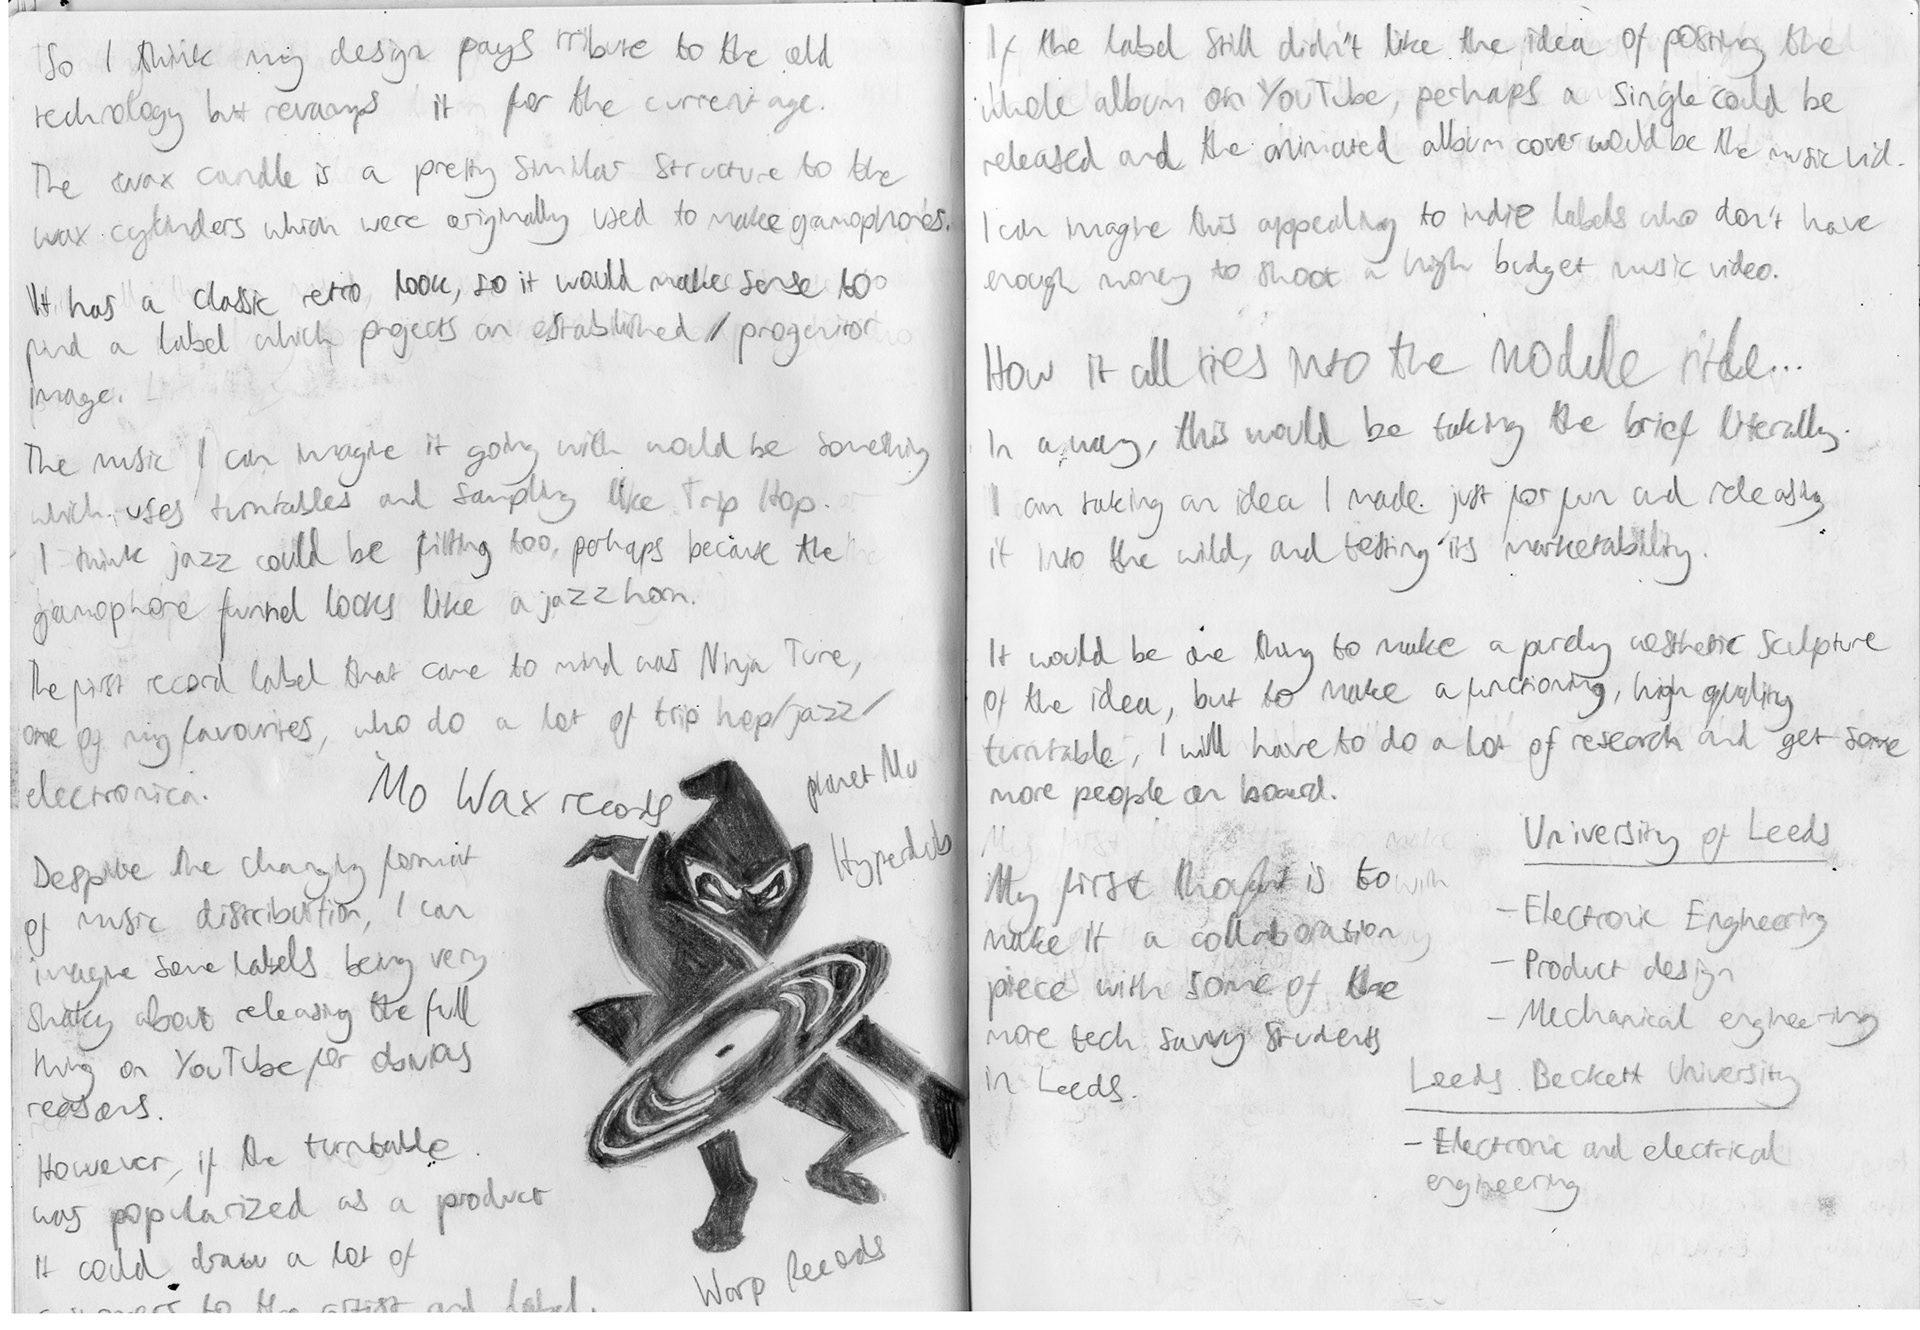 So I think my design pays tribute to the old
technology but revamps it for the current age.
The wax candle is a pretty similar structure to the
wax cylinders which were originally used to make gramophones.
It has a classic retro look, so it would make sense to
find a label which projects an established / progenitor
image.
The music I can imagine it going with would be something
which uses turntables and sampling like Trip Hop.
I think jazz could be fitting too, perhaps because the
gramophone funnel looks like a jazz horn.
The first record label that came to mind was Ninja Tune,
one of my favourites, who do a lot of trip hop/jazz/
electronica.
Mo Wax records
planet Mu
Hyperdub
Despite the changing format
of music distribution, I can
imagine some labels being very
shaky about releasing the full
thing on YouTube for obvious
reasons.
However, if the turntable
was popularized as a product
it could draw a lot of
to the artist and label.
Warp Records
If the label still didn't like the idea of posting the
whole album on YouTube, perhaps a single could be
released and the animated album cover would be the music vid.
I can imagine this appealing to indie labels who don't have
enough money to shoot a high budget music video.
How it all ties into the module title...
In a way, this would be taking the brief literally.
I am taking an idea I made just for fun and releasing
it into the wild, and testing its marketability.
It would be one thing to make a purely aesthetic sculpture
of the idea, but to make a functioning, high quality
turntable, I will have to do a lot of research and get some
more people on board.
My first thought is to
make it a collaboration
piece with some of the
more tech savvy students
in Leeds.
University of Leeds
- Electronic Engineering
- Product design
- Mechanical engineering
Leeds Beckett University
- Electronic and electrical
engineering